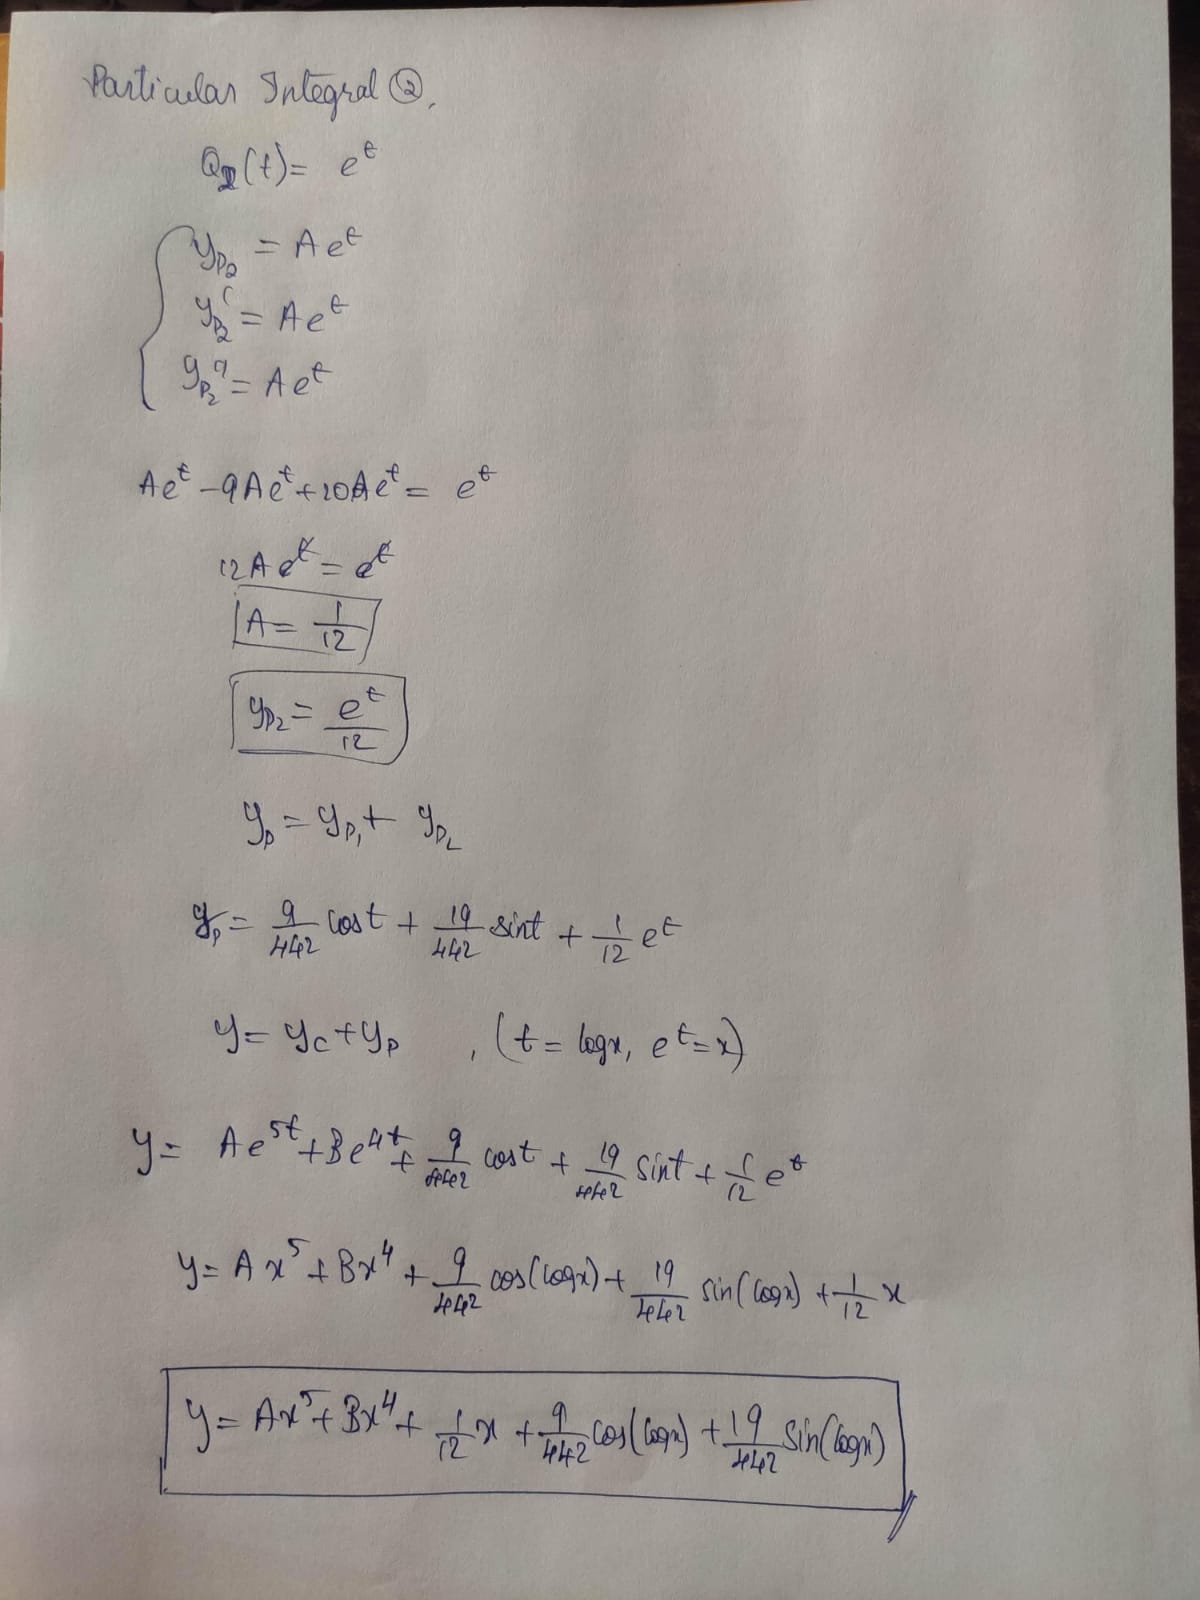 Particular Integral ②,
Q₂(t) = e^t
y_p₂ = A e^t
y_p₂' = A e^t
y_p₂'' = A e^t
Ae^t - 9Ae^t + 20Ae^t = e^t
12Ae^t = e^t
A = 1/12
y_p₂ = e^t/12
y_p = y_p₁ + y_p₂
y_p = 9/442 cost + 19/442 sint + 1/12 e^t
y = y_c + y_p , (t = logx, e^t = x)
y = Ae^5t + Be^4t + 9/442 cost + 19/442 sint + 1/12 e^t
y = Ax^5 + Bx^4 + 9/442 cos(logx) + 19/442 sin(logx) + 1/12 x
y = Ax^5 + Bx^4 + 1/12 x + 9/442 cos(logx) + 19/442 sin(logx)